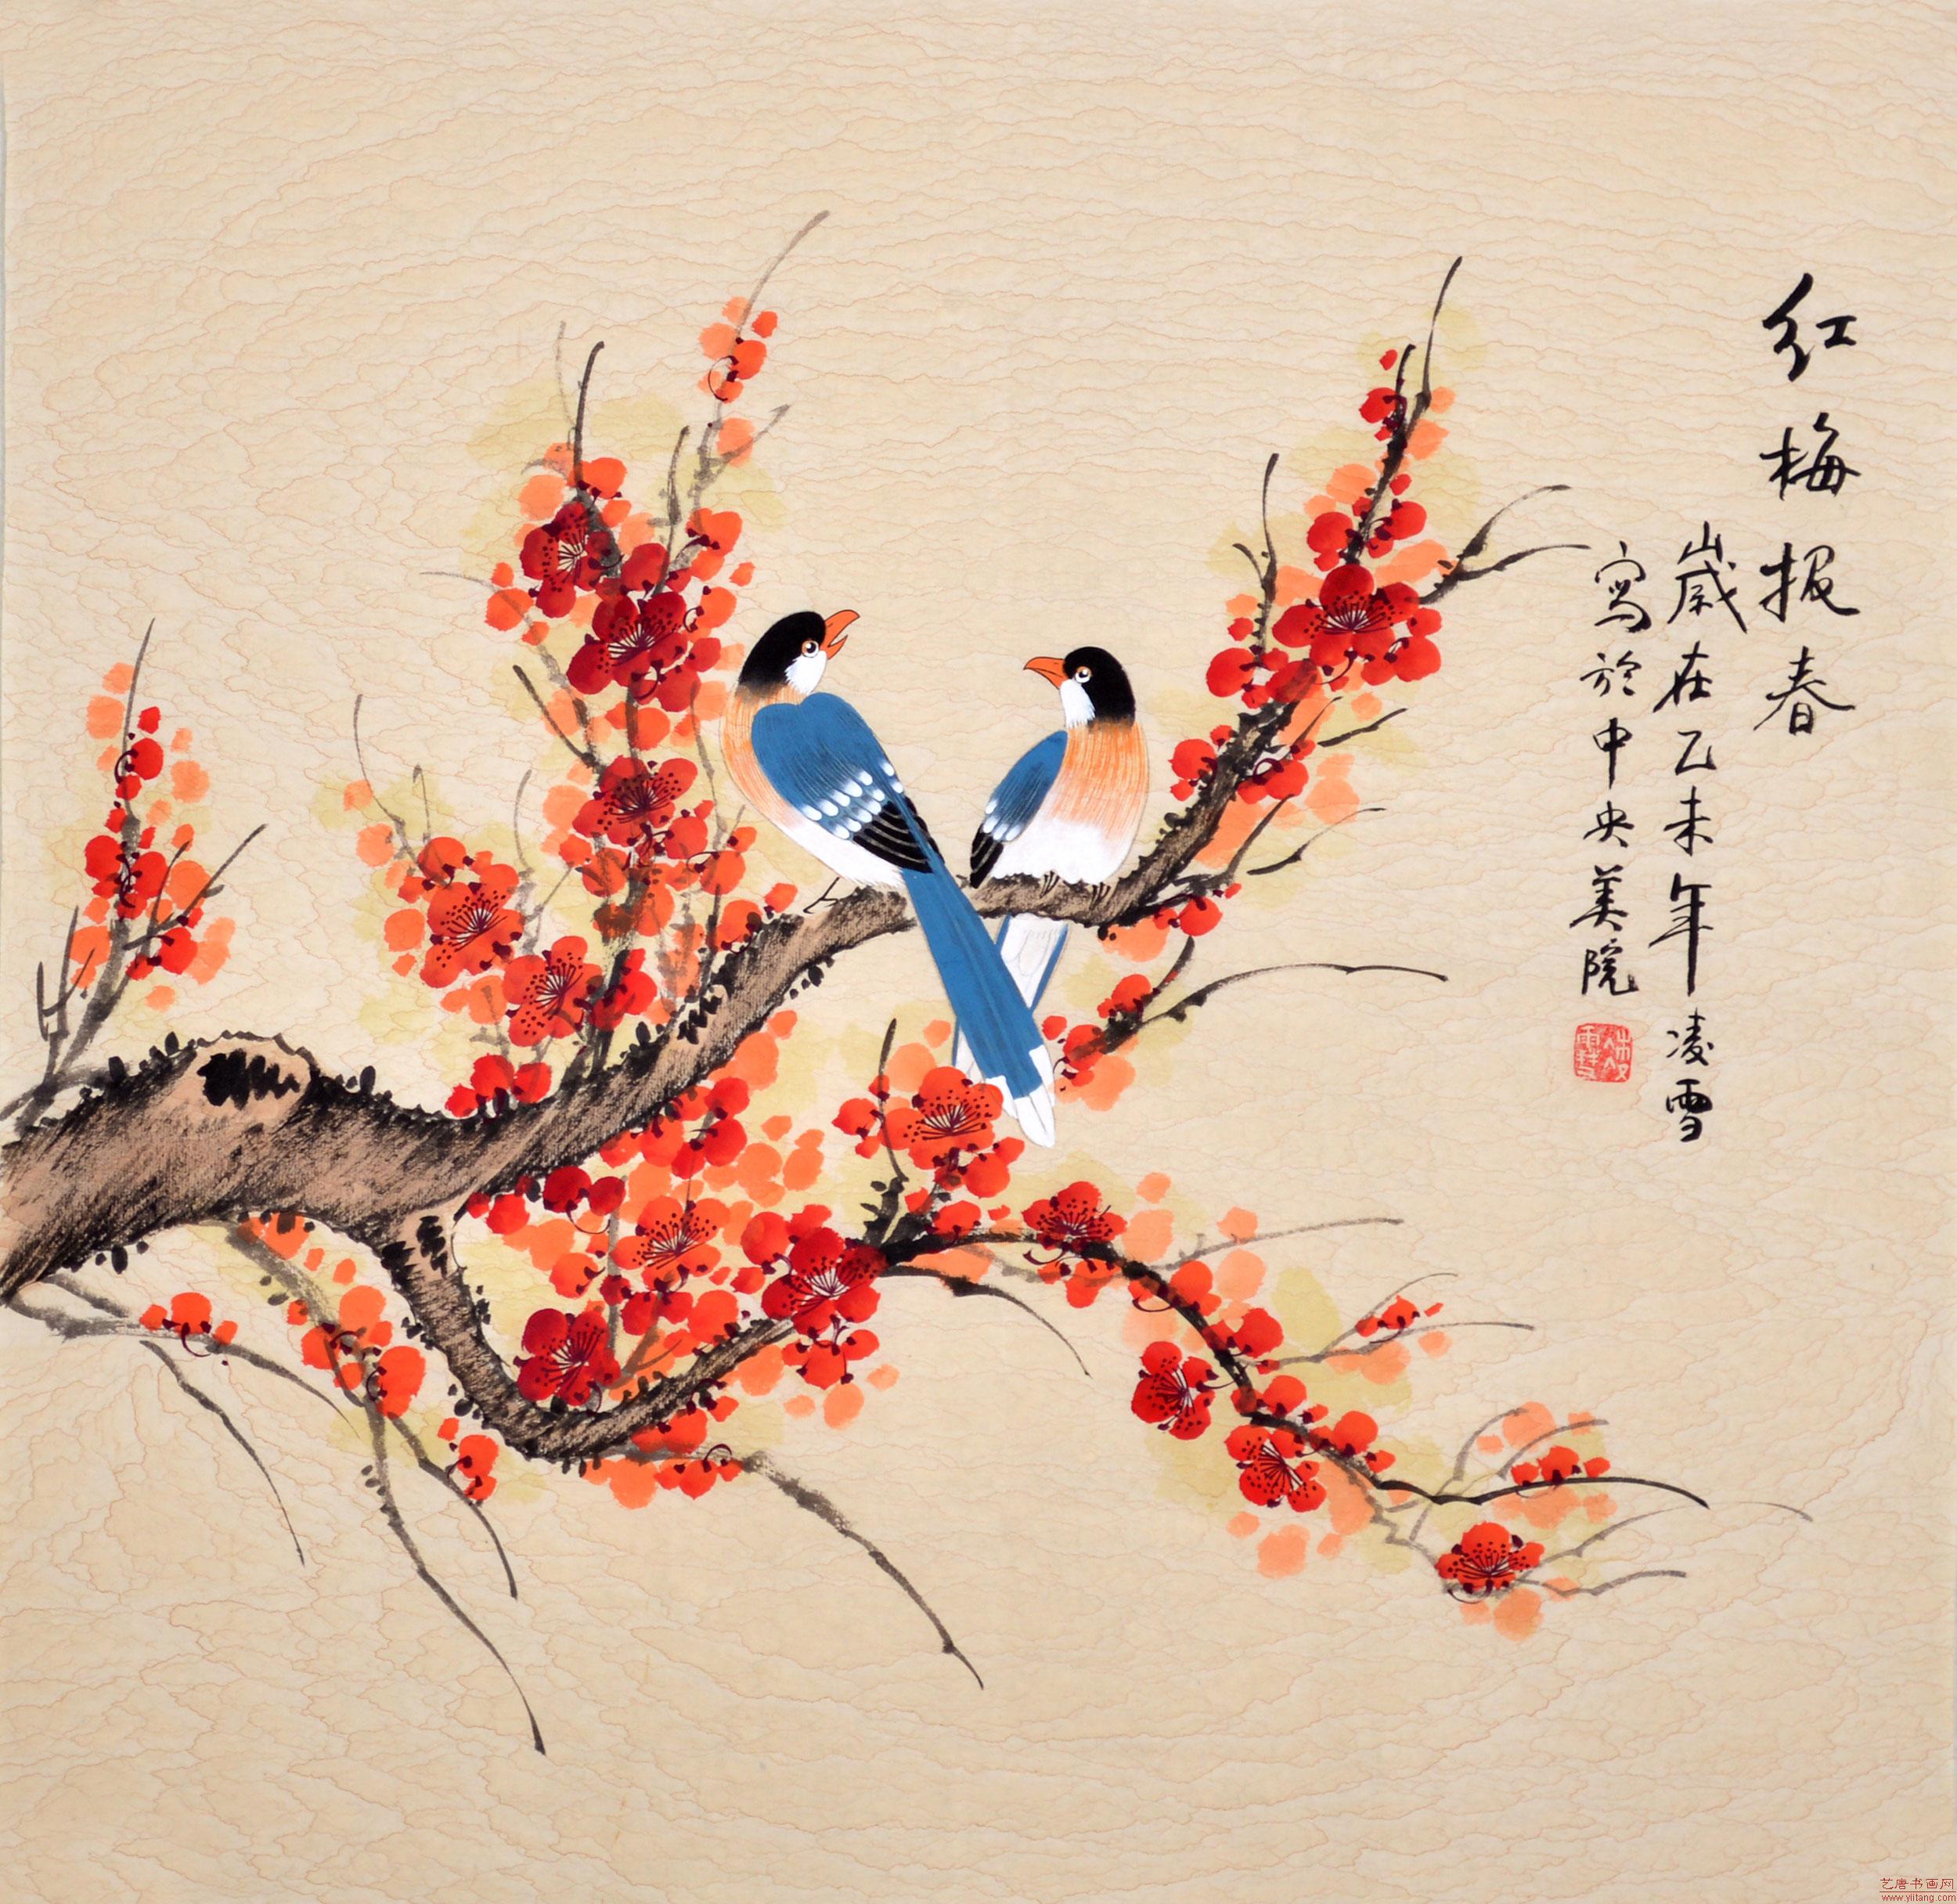 红梅报春
岁在乙未年凌雪
寫於中央美院
艺唐书画网
www.yiitang.com